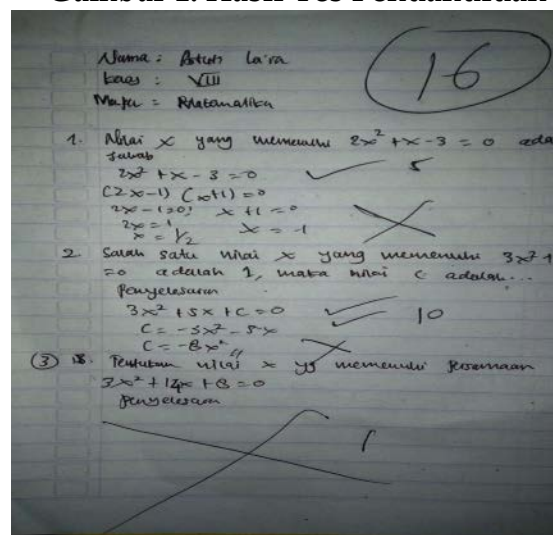 Nama :
Kelas : VIII
Mapel = Matematika
16
1. Nilai x yang memenuhi 2x² + x - 3 = 0 ada
Jawab
2x² + x - 3 = 0
5
(2x-1) (x+1) = 0
2x - 1 = 0; x + 1 = 0
2x = 1
x = 1/2 x = -1
2. Salah satu nilai x yang memenuhi 3x²+
=0 adalah 1, maka nilai c adalah...
Penyelesaian
3x² + 5x + C = 0
10
C = -3x² - 5x
C = -8x²
3 Tentukan nilai x yg memenuhi Persamaan
3x² + 14x + 8 = 0
Penyelesaian
1